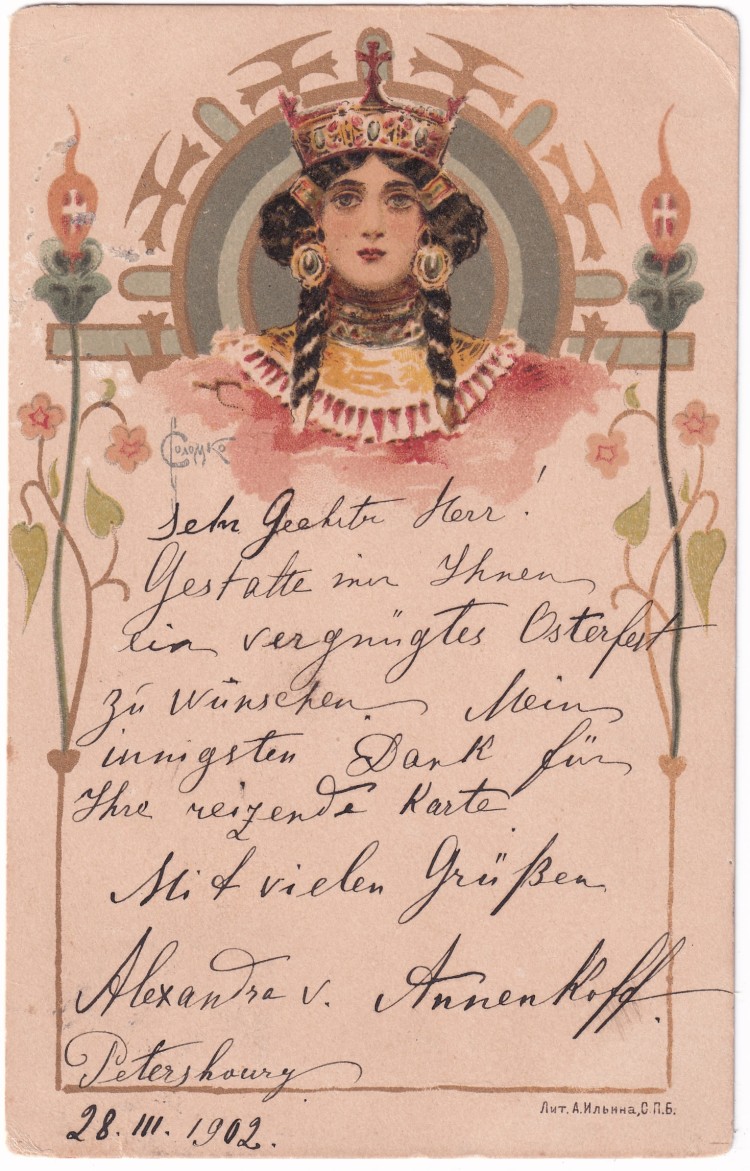 Соломко
Sehr Geehrter Herr!
Gestatte mir Ihnen
ein vergnügtes Osterfest
zu wünschen. Mein
innigsten Dank für
Ihre reizende Karte
Mit vielen Grüßen
Alexandra v. Annenkoff.
Petersbourg
28. III. 1902.
Лит. А. Ильина, С.П.Б.